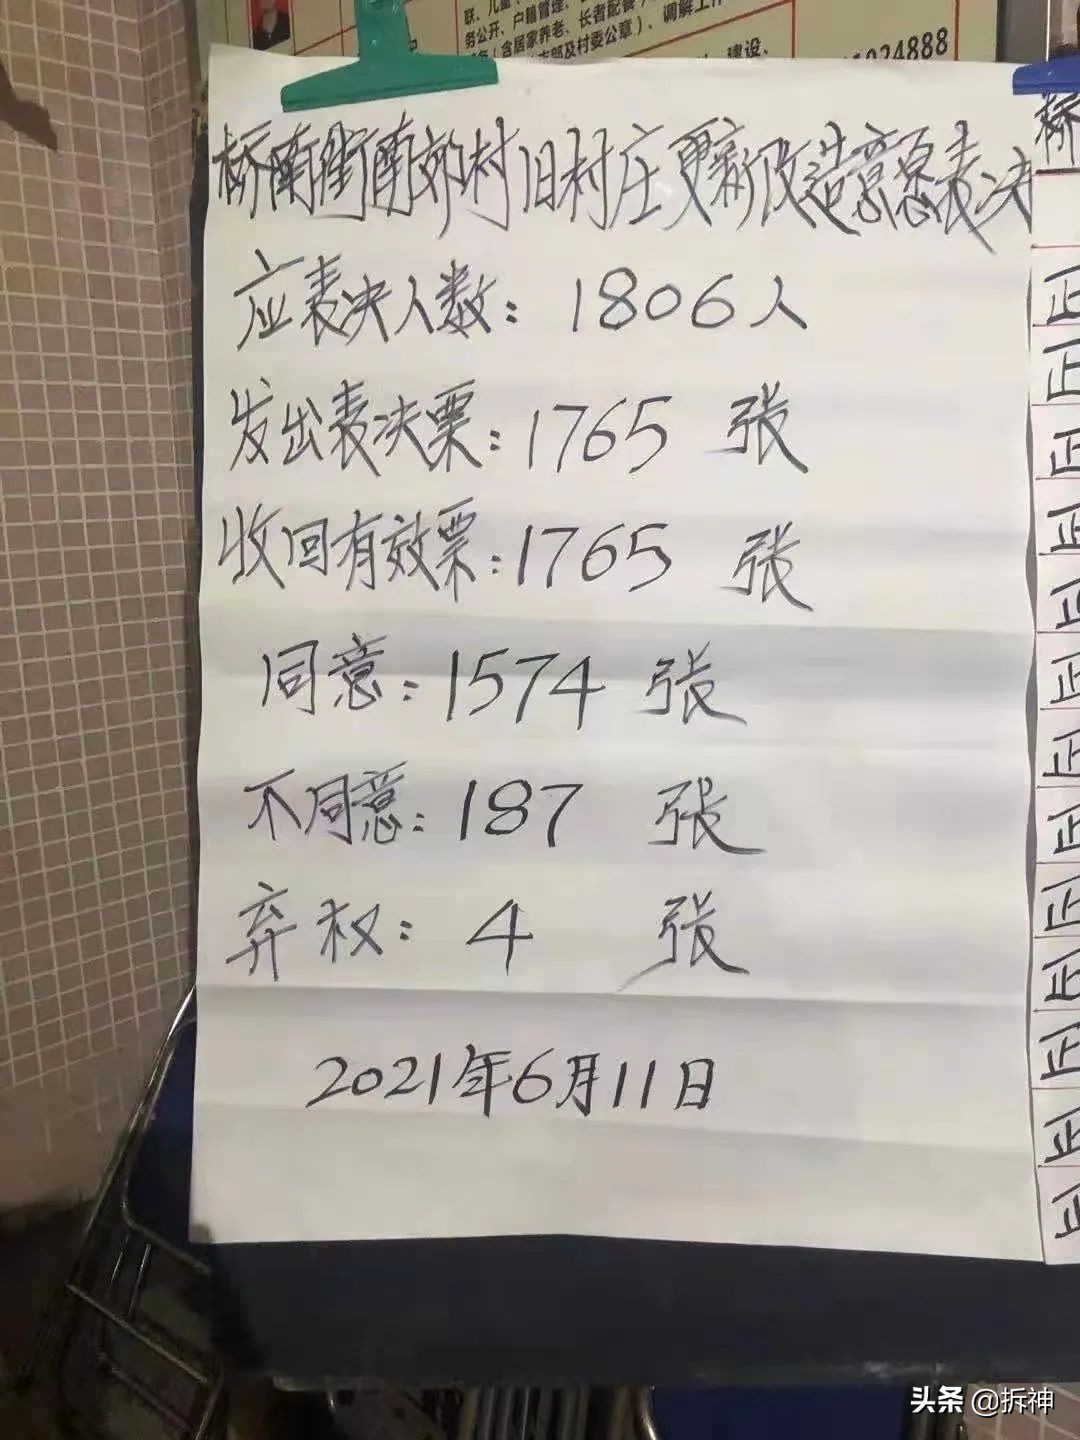 联、儿童
务公开、户籍管理、
(含居家养老、长者配餐)、
支部及村委公章)、调解工作
建设、
1024888
桥南街南郊村旧村庄更新改造意愿表决
应表决人数：1806人
发出表决票：1765 张
收回有效票：1765 张
同意：1574 张
不同意：187 张
弃权：4 张
2021年6月11日
桥
正
正
正
正
正
正
正
正
正
正
正
正
正
头条 @拆神